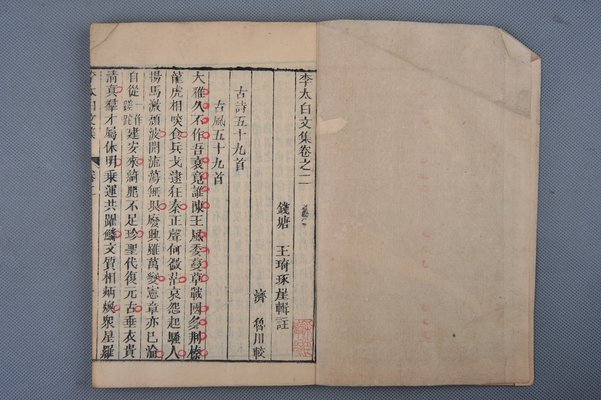 李太白文集卷之二
錢塘 王琦琢崖輯註
濟魯川較
古詩五十九首
古風五十九首
大雅久不作吾衰竟誰陳王風委蔓草戰國多荆榛
龍虎相啖食兵戈逮狂秦正聲何微茫哀怨起騷人
揚馬激頹波開流蕩無垠廢興雖萬變憲章亦已淪
自從建安來綺麗不足珍聖代復元古垂衣貴
清真羣才屬休明乘運共躍鱗文質相炳煥衆星羅
李太白文集